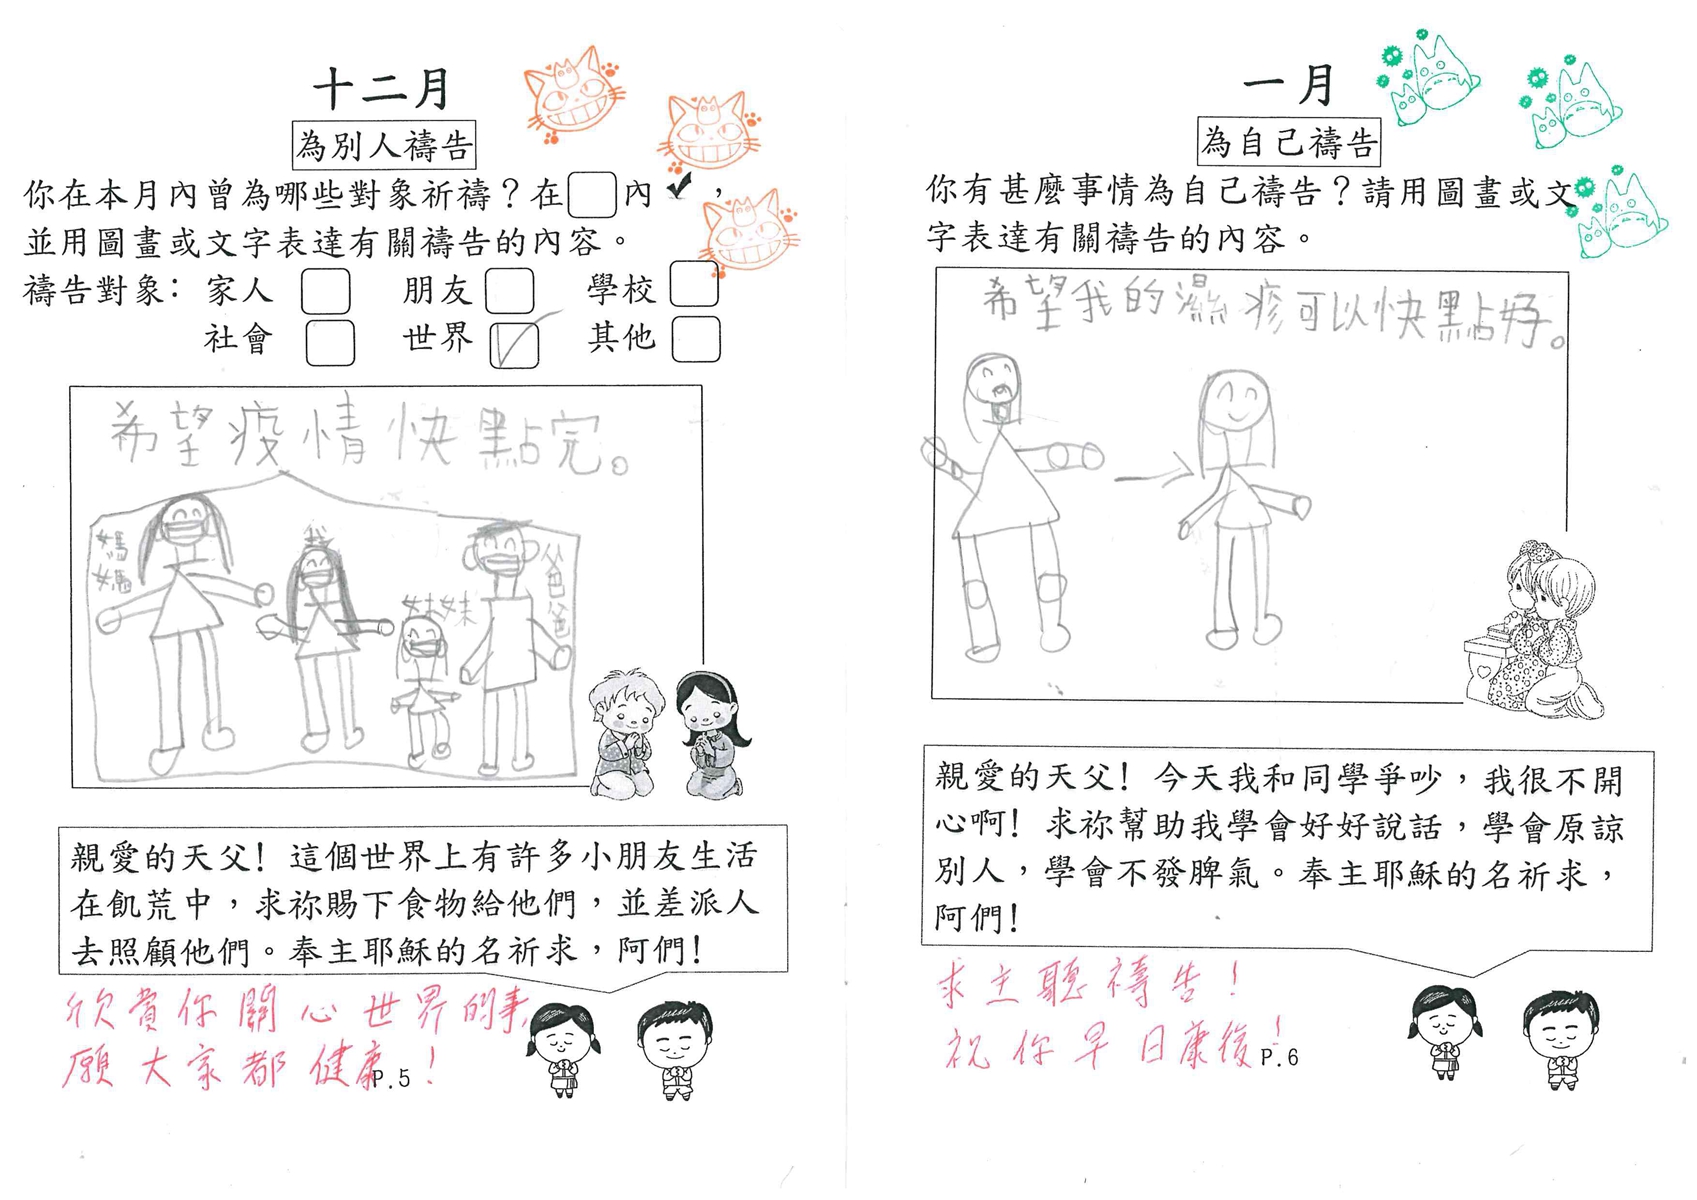 十二月
為別人禱告
你在本月內曾為哪些對象祈禱？在內✔，
並用圖畫或文字表達有關禱告的內容。
禱告對象：家人 朋友 學校
社會 世界 其他
希望疫情快點完。
媽媽
我
妹妹
爸爸
親愛的天父！這個世界上有許多小朋友生活
在飢荒中，求祢賜下食物給他們，並差派人
去照顧他們。奉主耶穌的名祈求，阿們！
欣賞你關心世界的事，
願大家都健康！
P.5
一月
為自己禱告
你有甚麼事情為自己禱告？請用圖畫或文
字表達有關禱告的內容。
希望我的濕疹可以快點好。
親愛的天父！今天我和同學爭吵，我很不開
心啊！求祢幫助我學會好好說話，學會原諒
別人，學會不發脾氣。奉主耶穌的名祈求，
阿們！
求主聽禱告！
祝你早日康復！
P.6